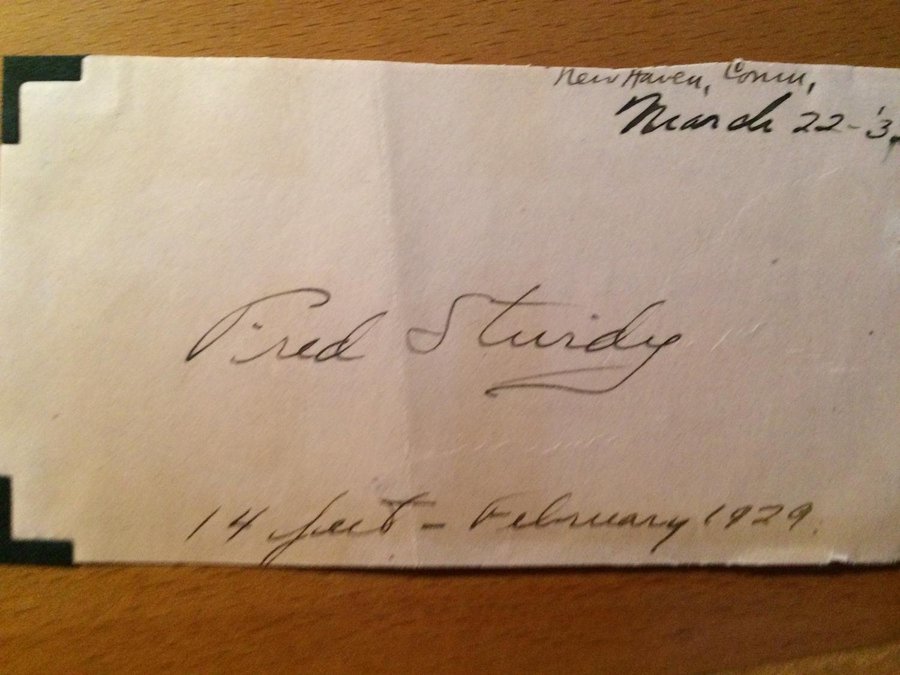 New Haven, Conn,
March 22-'3
Fred Sturdy
14 feet - February 1929.